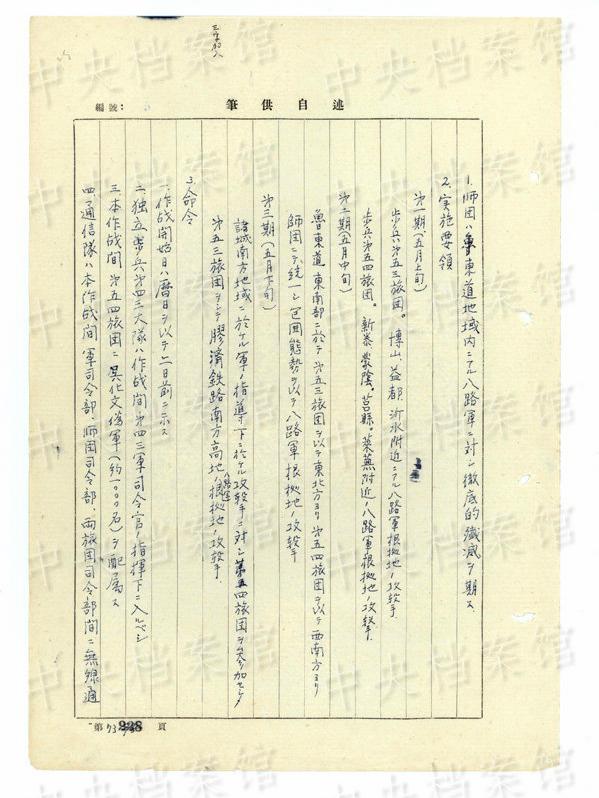 三字加入
編號：
筆供自述
1.師団ハ魯東道地域内ニアル八路軍ニ対シ徹底的殲滅ヲ期ス
2.実施要領
第一期(五月上旬)
歩兵第五三旅団。博山、益都、沂水附近ニアル八路軍根拠地ノ攻撃
歩兵第五四旅団。新泰、蒙陰、莒縣、萊蕪附近ノ八路軍根拠地ノ攻撃、
第二期(五月中旬)
魯東道東南部ニ於テ第五三旅団ヲ以テ東北方ヨリ第五四旅団ヲ以テ西南方ヨリ
師団ニテ統一シ包囲態勢ヲ以テ八路軍根拠地ノ攻撃
第三期(五月下旬)
諸城南方地域ニ於ケル軍ノ指導下ニ於ケル攻撃ニ対シ第五四旅団ヲ参加セシメ
第五三旅団ヲシテ膠済鉄路南方高地八路軍ノ根拠地ノ攻撃、
3.命令
一、作戦開始日ハ暦日ヲ以テ二日前ニ示ス
二、独立歩兵第四三大隊ハ作戦間第四三軍司令官ノ指揮下ニ入ルベシ
三、本作戦間第五四旅団ニ呉化文偽軍(約一〇〇〇名)ヲ配属ス
四、通信隊ハ本作戦間軍司令部、師団司令部、両旅団司令部間ニ無線通
第 238 頁
中央档案馆